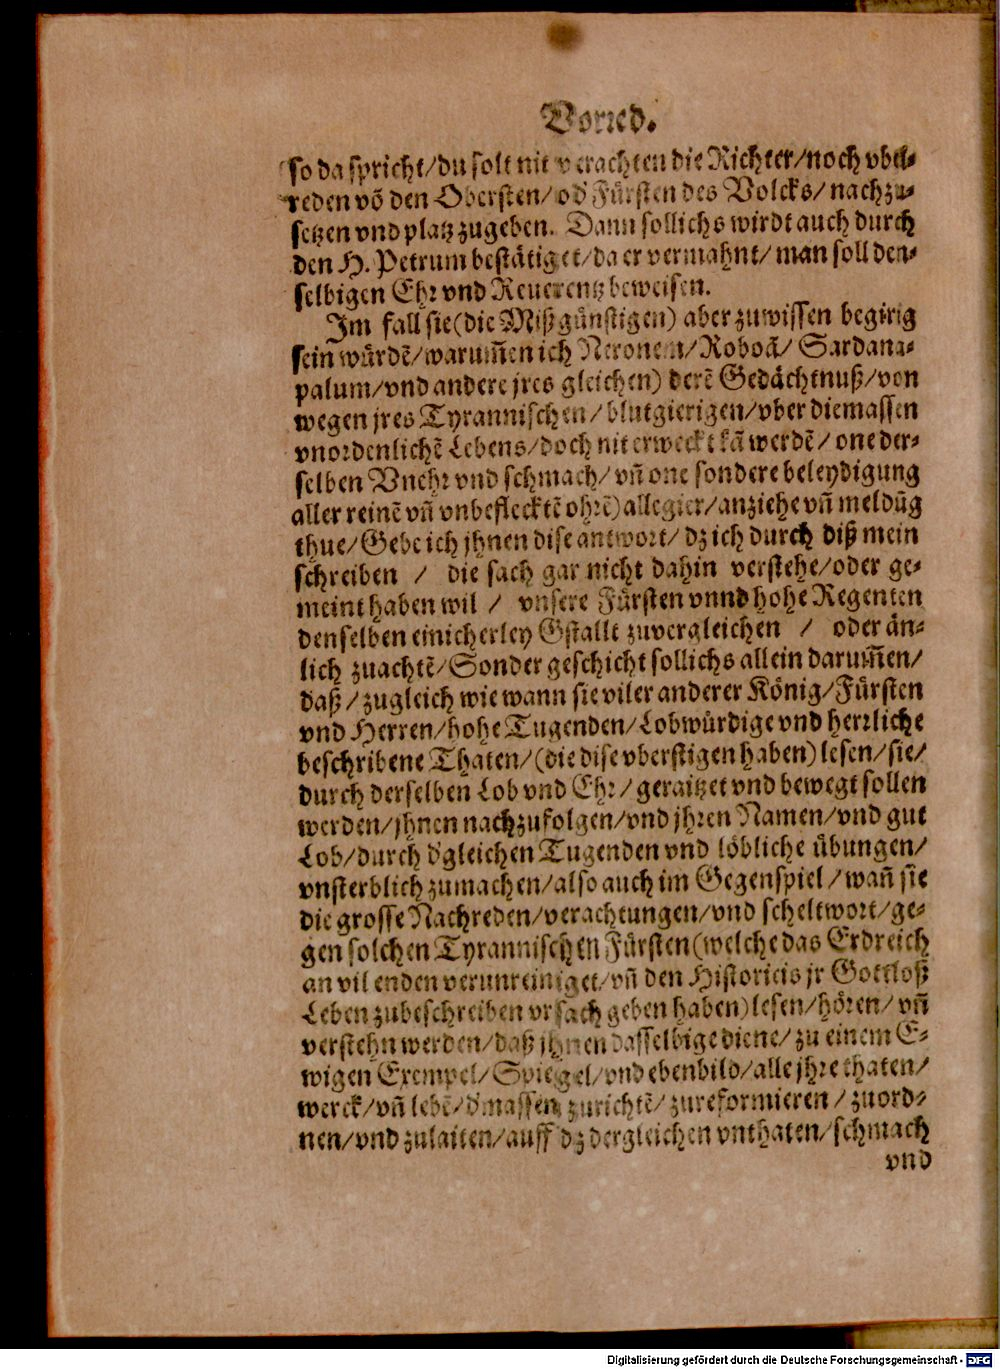 Vorred.
so da spricht/du solt nit verachten die Richter/noch vbel-
reden võ den Obersten/ od' Fürsten des Volcks/ nachzu-
setzen vnd platz zugeben. Dann sollichs wirdt auch durch
den H. Petrum bestätiget/da er vermahnt/ man soll den-
selbigen Ehr vnd Reuerentz beweisen.
Im fall sie(die Mißgünstigen) aber zuwissen begirig
sein würdẽ/warum̃en ich Neronem/Roboã/ Sardana-
palum/vnd andere jres gleichen) derẽ Gedächtnuß/von
wegen jres Tyrannischen/ blutgierigen/vber diemassen
vnordenlichẽ Lebens/doch nit erweckt kã werdẽ/ one der-
selben Vnehr vnd schmach/ vñ one sondere beleydigung
aller reinẽ vñ vnbefleecktẽ ohrẽ)allegier/anziehe vñ meldũg
thue/Gebe ich jhnen dise antwort/ dz ich durch diß mein
schreiben / die sach gar nicht dahin verstehe/oder ge-
meint haben wil / vnsere Fürsten vnnd hohe Regenten
denselben einicherley Gstallt zuvergleichen / oder än-
lich zuachtẽ/Sonder geschicht sollichs allein darum̃en/
daß/zugleich wie wann sie viler anderer König/Fürsten
vnd Herren/hohe Tugenden/Lobwürdige vnd herrliche
beschribene Thaten/(die dise vberstigen haben)lesen/sie/
durch derselben Lob vnd Ehr/geraitzet vnd bewegt sollen
werden/jhnen nachzufolgen/vnd jhren Namen/vnd gut
Lob/durch d'gleichen Tugenden vnd löbliche übungen/
vnsterblich zumachen/also auch im Gegenspiel/wañ sie
die grosse Nachreden/verachtungen/vnd scheltwort/ge-
gen solchen Tyrannischen Fürsten(welche das Erdreich
an vil enden verunreiniget/vñ den Historicis jr Gottloß
Leben zubeschreiben vrsach geben haben)lesen/hören/ vñ
verstehn werden/daß jhnen dasselbige diene/ zu einem E-
wigen Exempel/Spiegel/vnd ebenbild/alle jhre thaten/
werck/vñ lebẽ/d'massen zurichtẽ/zureformieren/zuord-
nen/vnd zulaiten/auff dz dergleichen vnthaten/schmach
vnd
Digitalisierung gefördert durch die Deutsche Forschungsgemeinschaft - DFG